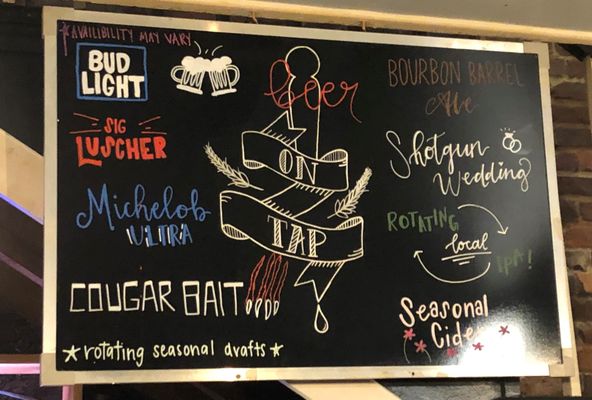 *AVAILIBILITY MAY VARY
BUD
LIGHT
SIG
LUSCHER
Michelob
ULTRA
COUGAR BAIT
*rotating seasonal drafts*
beer
ON
TAP
BOURBON BARREL
Ale
Shotgun
Wedding
ROTATING
local
IPA!
Seasonal
Cider